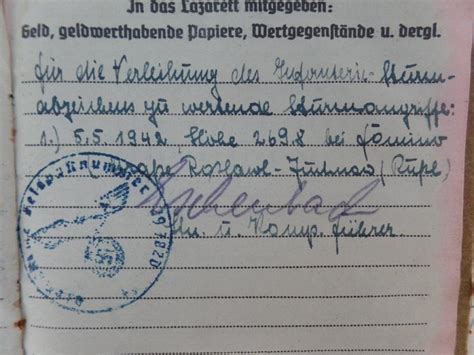 In das Lazarett mitgegeben:
Geld, geldwerthabende Papiere, Wertgegenstände u. dergl.
für die Verleihung des Infanterie-Sturm-
abzeichens zu wertende Sturmangriffe:
1.) 5.5.1942, Höhe 269.8 bei Fomino
Roslawl-Juchnow
Ln. u. Komp. führer.